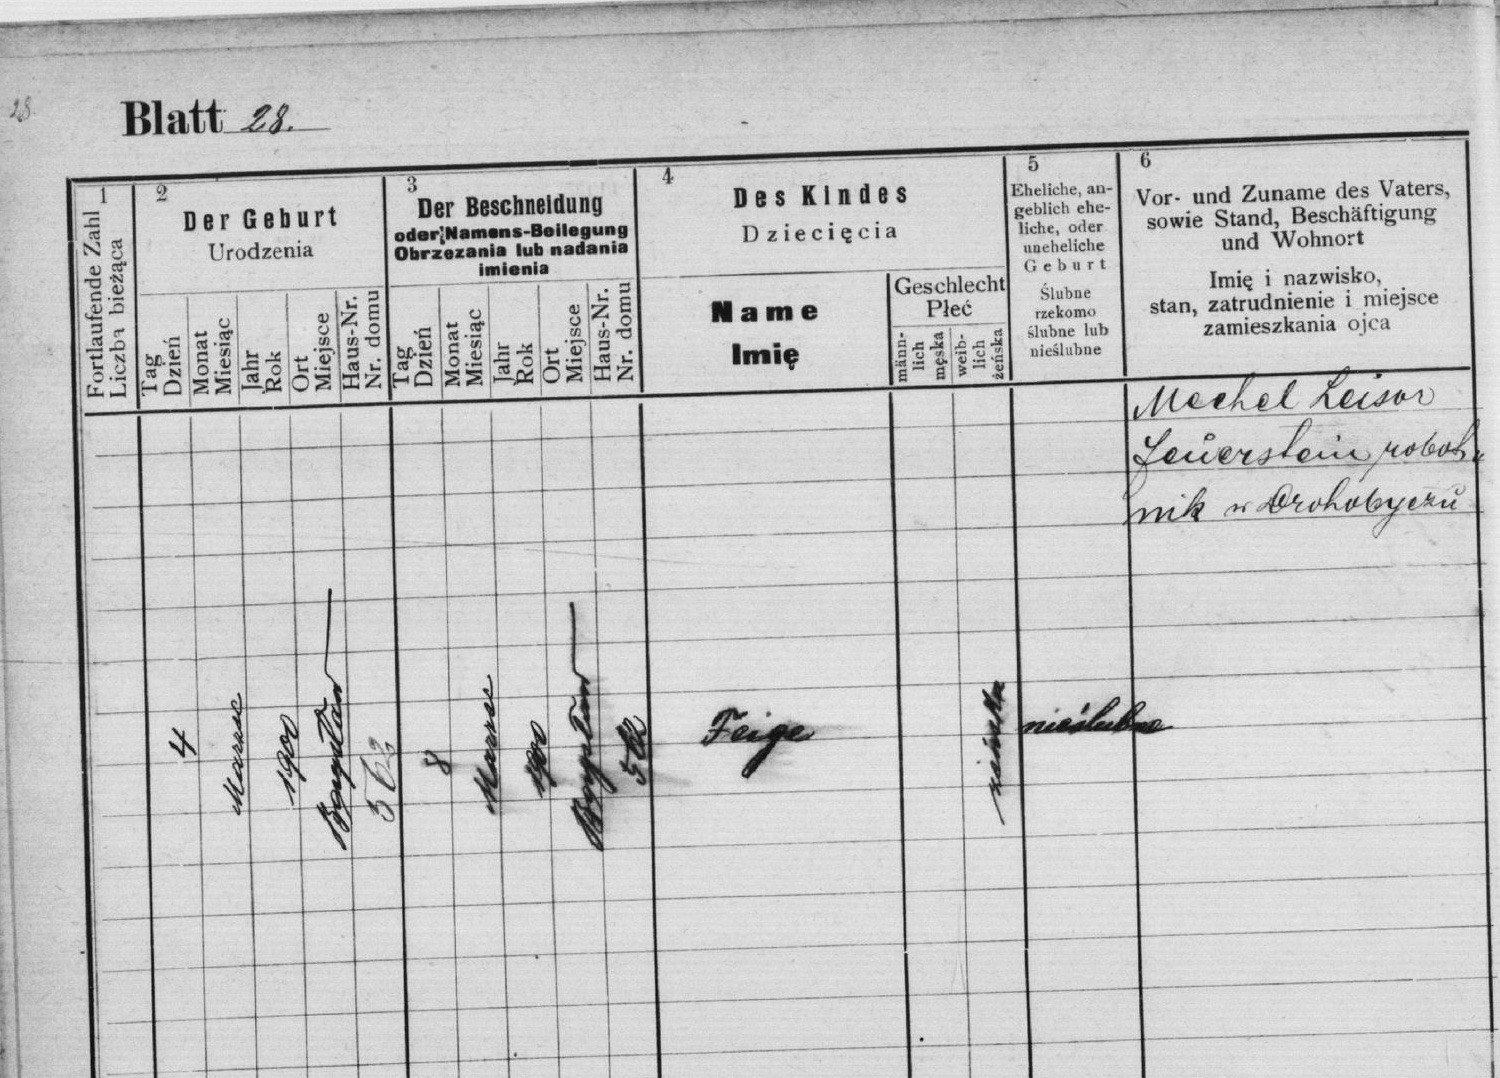 28.
Blatt 28.
1
Fortlaufende Zahl
Liczba bieżąca
2
Der Geburt
Urodzenia
Tag
Dzień
Monat
Miesiąc
Jahr
Rok
Ort
Miejsce
Haus-Nr.
Nr. domu
3
Der Beschneidung
oder Namens-Beilegung
Obrzezania lub nadania
imienia
Tag
Dzień
Monat
Miesiąc
Jahr
Rok
Ort
Miejsce
Haus-Nr.
Nr. domu
4
Des Kindes
Dziecięcia
Name
Imię
Geschlecht
Płeć
männ-
lich
męska
weib-
lich
żeńska
5
Eheliche, an-
geblich ehe-
liche, oder
uneheliche
Geburt
Ślubne
rzekomo
ślubne lub
nieślubne
6
Vor- und Zuname des Vaters,
sowie Stand, Beschäftigung
und Wohnort
Imię i nazwisko,
stan, zatrudnienie i miejsce
zamieszkania ojca
Mechel Leisor
Feuerstein robot-
nik w Drohobyczu
4
Marzec
1900
562
8
Marzec
1900
562
Feige
żeńska
nieślubne